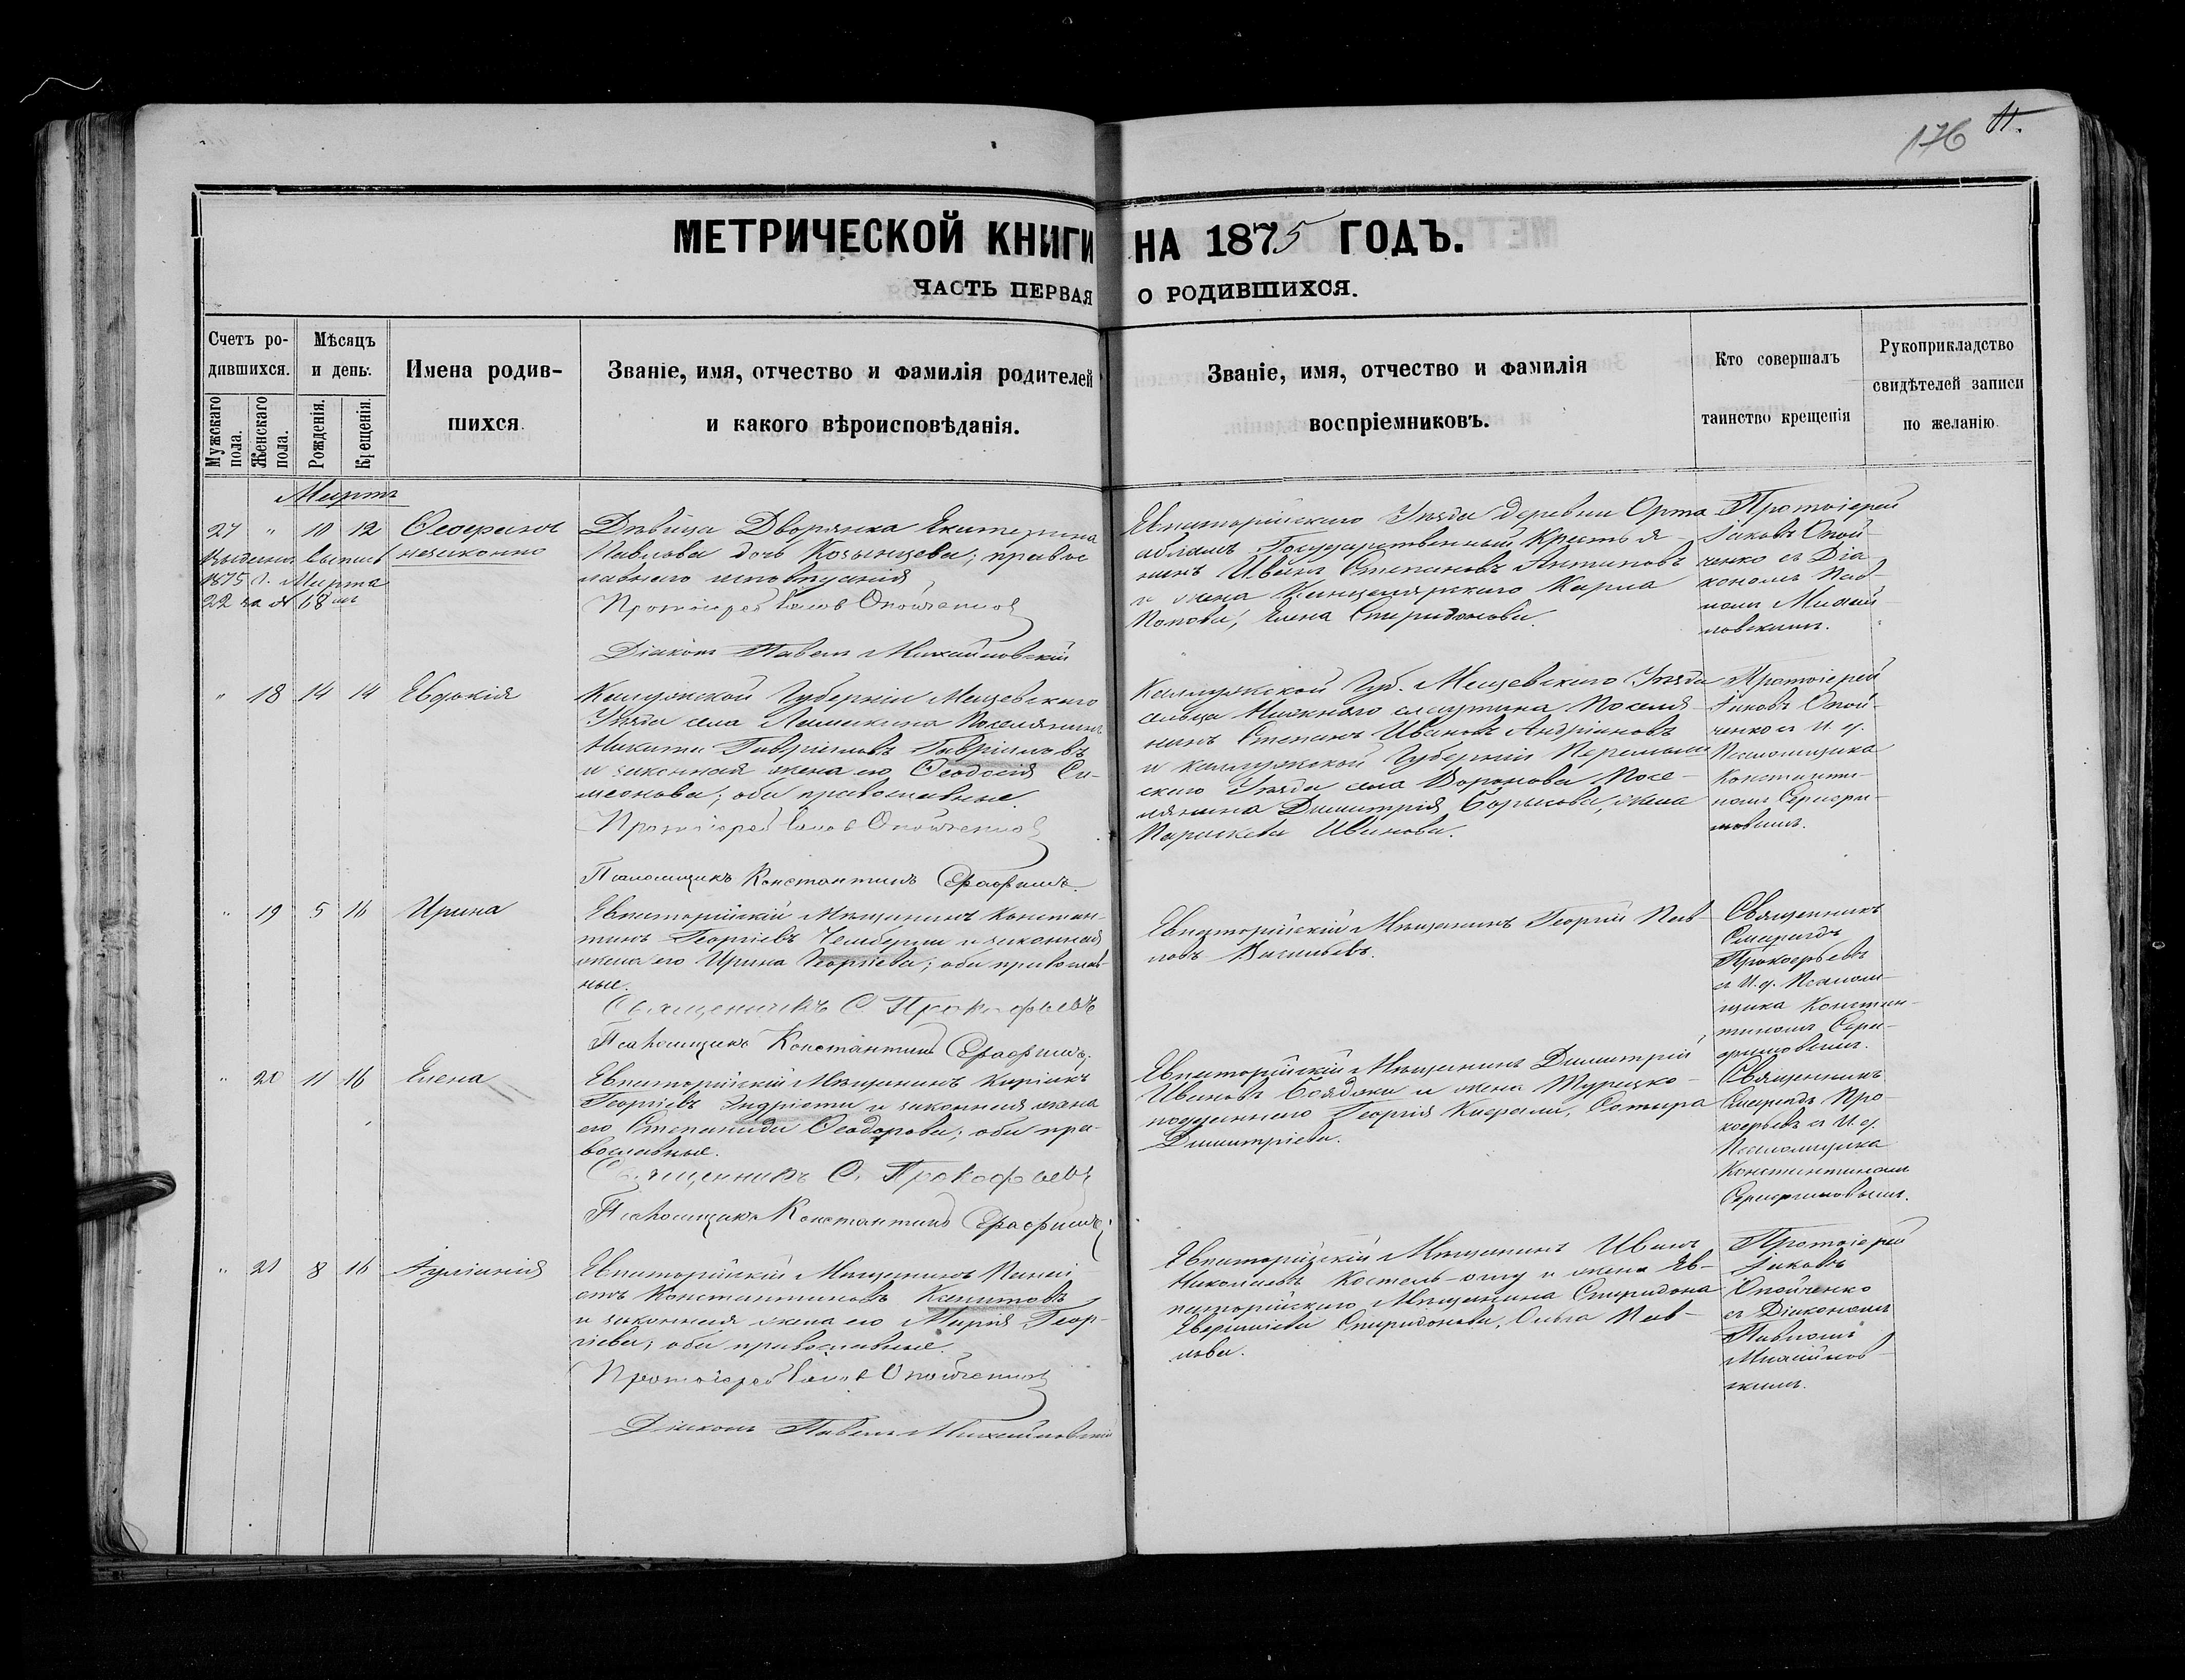 176 11.
МЕТРИЧЕСКОЙ КНИГИ НА 1875 ГОДЪ.
ЧАСТЬ ПЕРВАЯ О РОДИВШИХСЯ.
Счетъ ро-
дившихся.
Мужскаго пола.
Женскаго пола.
Мѣсяцъ
и день.
Рожденія.
Крещенія.
Имена родив-
шихся.
Званіе, имя, отчество и фамилія родителей
и какого вѣроисповѣданія.
Званіе, имя, отчество и фамилія
воспріемниковъ.
Кто совершалъ
таинство крещенія
Рукоприкладство
свидѣтелей записи
по желанію.
Мартъ
27 " 10 12
1875 г. Марта
22 за № 68
Ѳеофанъ
незаконно
Дѣвица Дворянка Екатерина
Павлова дочь Козынцева; правос
лавнаго исповѣданія
Протоіерей Іаковъ Опойченко
Діаконъ Павелъ Михайловскій
Евпаторійскаго Уѣзда деревни Орта
абламъ Государственный Крестья-
нинъ Иванъ Степановъ Антиповъ
и жена Канцелярскаго Карпа
Попова, Елена Спиридонова.
Протоіерей
Іаковъ Опой-
ченко съ Діа
кономъ Пав-
ломъ Михай
ловскимъ.
" 18 14 14
Евдокія
Калужской Губерніи Мещевскаго
Уѣзда села Поселянинъ
Никита Гавріиловъ Гавріиловъ
и законная жена его Ѳеодосія Си-
меонова; оба православные.
Протоіерей Іаковъ Опойченко
Псаломщикъ Константинъ Серафимовъ.
Калужской Губ. Мещевскаго Уѣзда
сельца Поселя-
нинъ Степанъ Ивановъ Андріановъ
и Калужской Губерніи Перемышль
скаго Уѣзда села Воронова Посе-
лянина Димитрія Борисова, жена
Параскева Иванова.
Протоіерей
Іаковъ Опой-
ченко съ И. д.
Псаломщика
Константи-
номъ Серафи-
мовымъ.
" 19 5 16
Ирина
Евпаторійскій Мѣщанинъ Констан-
тинъ Георгіевъ и законная
жена его Ирина Георгіева; оба православ-
ные.
Священникъ С. Прокофьевъ
Псаломщикъ Константинъ Серафимовъ.
Евпаторійскій Мѣщанинъ Георгій Пав-
ловъ Васильевъ.
Священникъ
Смарагдъ
Прокофьевъ
съ И. д. Псалом-
щика Констан-
тиномъ Сера-
фимовымъ.
" 20 11 16
Елена
Евпаторійскій Мѣщанинъ Киріакъ
Георгіевъ и законная жена
его Степанида Ѳеодорова; оба пра-
вославные.
Священникъ С. Прокофьевъ
Псаломщикъ Константинъ Серафимовъ
Евпаторійскій Мѣщанинъ Димитрій
Ивановъ и жена Турецко-
подданнаго Георгія
Димитріева.
Священникъ
Смарагдъ Про-
кофьевъ съ И. д.
Псаломщика
Константиномъ
Серафимовымъ.
" 21 8 16
Іуліанія
Евпаторійскій Мѣщанинъ Панаі
отъ Константиновъ
и законная жена его Марія Геор-
гіева; оба православные.
Протоіерей Іаковъ Опойченко
Діаконъ Павелъ Михайловскій
Евпаторійскій Мѣщанинъ Иванъ
Николаевъ и жена Ев-
паторійскаго Мѣщанина Спиридона
Спиридонова, Ольга Пав-
лова.
Протоіерей
Іаковъ
Опойченко
съ Діакономъ
Павломъ
Михайлов-
скимъ.